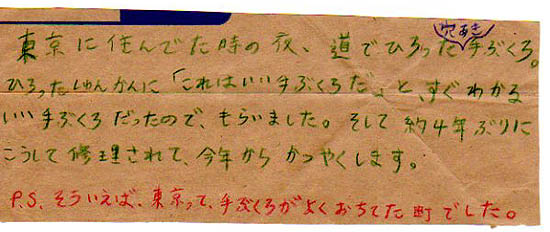 東京に住んでた時の夜、道でひろった穴あき手ぶくろ。
ひろったしゅんかんに「これはいい手ぶくろだ。」と、すぐわかる
いい手ぶくろだったので、もらいました。そして約4年ぶりに
こうして修理されて、今年からかつやくします。
P.S. そういえば、東京って、手ぶくろがよくおちてた町でした。